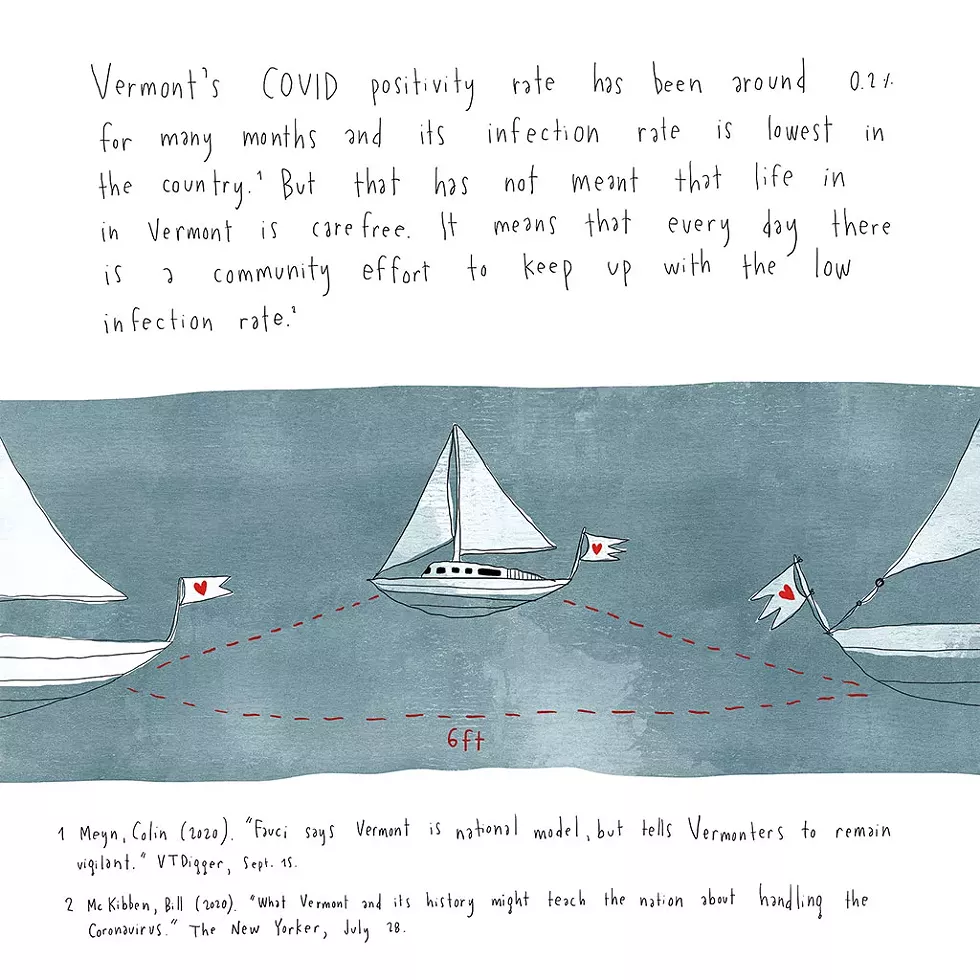 Vermont's COVID positivity rate has been around 0.2%
for many months and its infection rate is lowest in
the country.¹ But that has not meant that life in
in Vermont is carefree. It means that every day there
is a community effort to keep up with the low
infection rate.²
6ft
1 Meyn, Colin (2020). "Fauci says Vermont is national model, but tells Vermonters to remain
vigilant." VTDigger, Sept. 15.
2 McKibben, Bill (2020). "What Vermont and its history might teach the nation about handling the
Coronavirus." The New Yorker, July 28.